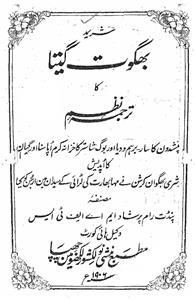 شرید
بھگوت گیتا
کا
ترجمہ نظم
اپنشدون کا سار برہم ودیا اور یوگ شاستر کا خزانہ کرم اُپاسنا اور گیان
کا اُپدیش
شری بھگوان کرشن نے مہابھارت کی لڑائی کے میدان مین ارجن کو کیا
مصنفہ
پنڈت رام پرشاد ایم اے ایف ٹی ایس
وکیل ہائی کورٹ
مطبع منشی نولکشور لکھنؤ مین چھپا
۱۹۰۶ع